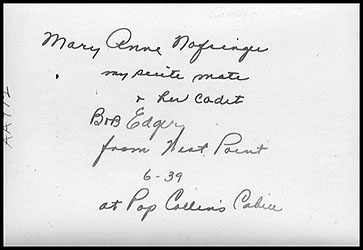 Mary Anne Nofsinger
my suite mate
& her cadet
Bob Edger
from West Point
6-39
at Pop Collin's Cabin